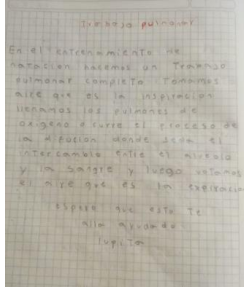 Trabajo pulmonar
En el entrenamiento de
natacion hacemos un trabajo
pulmonar completo Tomamos
aire que es la inspiracion
llenamos los pulmones de
oxigeno ocurre el proceso de
la difusion donde sera el
intercambio entre el alveolo
y la sangre y luego soltamos
el aire que es la expiracion
Espero que esto te
alla ayudado
lupita